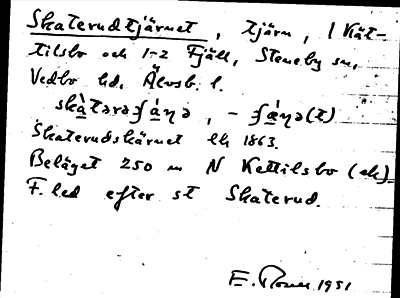 Skaterudtjärnet, tjärn, 1 Kät-
tilsbo och 1-2 Fjäll, Steneby sn,
Vedbo hd, Älvsb. l.
skàtərəʃä́ŋə, - ʃä́ŋə(t)
Skaterudskärnet Ek 1863.
Beläget 250 m N Kettilsbo (ek)
F. led efter st Skaterud.
E. 1951